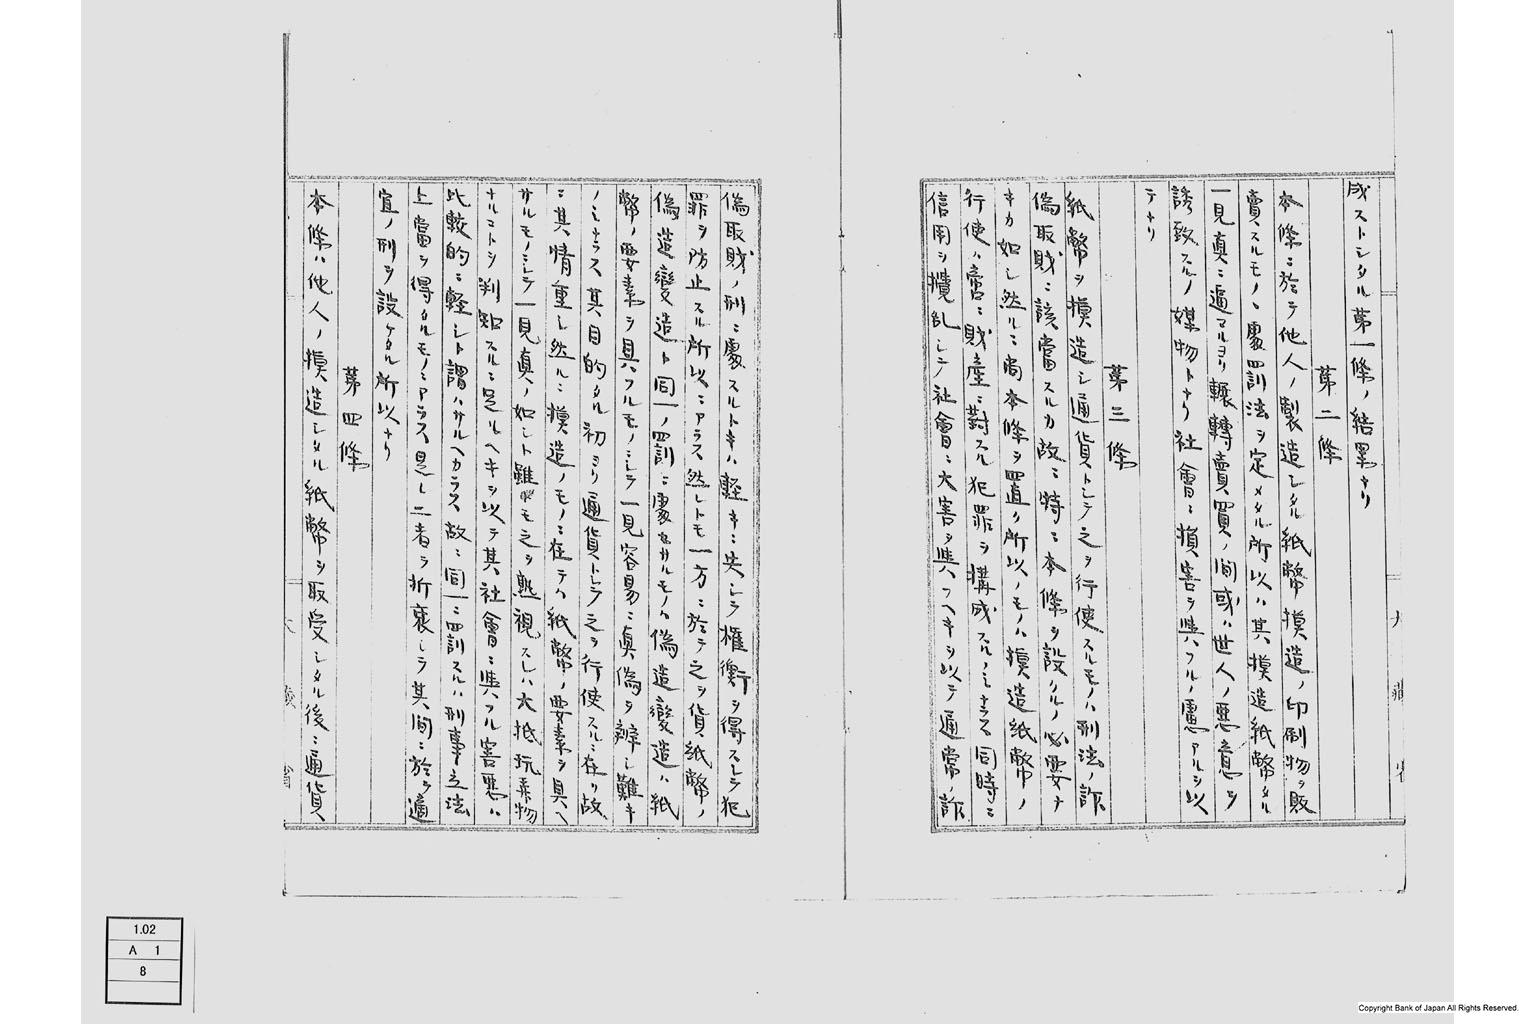 成ストシタル第一條ノ結果ナリ
第二條
本條ニ於テ他人ノ製造シタル紙幣摸造ノ印刷物ヲ販
賣スルモノヽ處罰法ヲ定メタル所以ハ其摸造紙幣タル
一見真ニ逼マルヨリ輾轉賣買ノ間或ハ世人ノ悪意ヲ
誘致スルノ媒物トナリ社會ニ損害ヲ與フルノ慮アルヲ以
テナリ
第三條
紙幣ヲ摸造シ通貨トシテ之ヲ行使スルモノハ刑法ノ詐
偽取財ニ該當スルカ故ニ特ニ本條ヲ設クルノ必要ナ
キカ如シ然ルニ尚本條ヲ置ク所以ノモノハ摸造紙幣ノ
行使ハ啻ニ財產ニ對スル犯罪ヲ構成スルノミナラス同時ニ
信用ヲ攪乱シテ社會ニ大害ヲ與フヘキヲ以テ通常ノ詐
偽取財ノ刑ニ處スルトキハ輕キニ失シテ權衡ヲ得スシテ犯
罪ヲ防止スル所以ニアラス然レトモ一方ニ於テ之ヲ貨紙幣ノ
偽造變造ト同一ノ罰ニ處セサルモノハ偽造變造ハ紙
幣ノ要素ヲ具フルモノニシテ一見容易ニ真偽ヲ辨シ難キ
ノミナラス其目的タル初ヨリ通貨トシテ之ヲ行使スルニ在リ故
ニ其情重シ然ルニ摸造ノモノニ在テハ紙幣ノ要素ヲ具ヘ
サルモノニシテ一見真ノ如シト雖モ之ヲ熟視スレハ大抵玩弄物
ナルコトヲ判知スルニ足ルヘキヲ以テ其社會ニ與フル害悪ハ
比較的ニ軽シト謂ハサルヘカラス故ニ同一ニ罰スルハ刑事立法
上當ヲ得タルモノニアラス是レ二者ヲ折衷シテ其間ニ於テ適
宜ノ刑ヲ設ケタル所以ナリ
第四條
本條ハ他人ノ摸造シタル紙幣ヲ取受シタル後ニ通貨
大藏省
1.02
A 1
8
Copyright Bank of Japan All Rights Reserved.